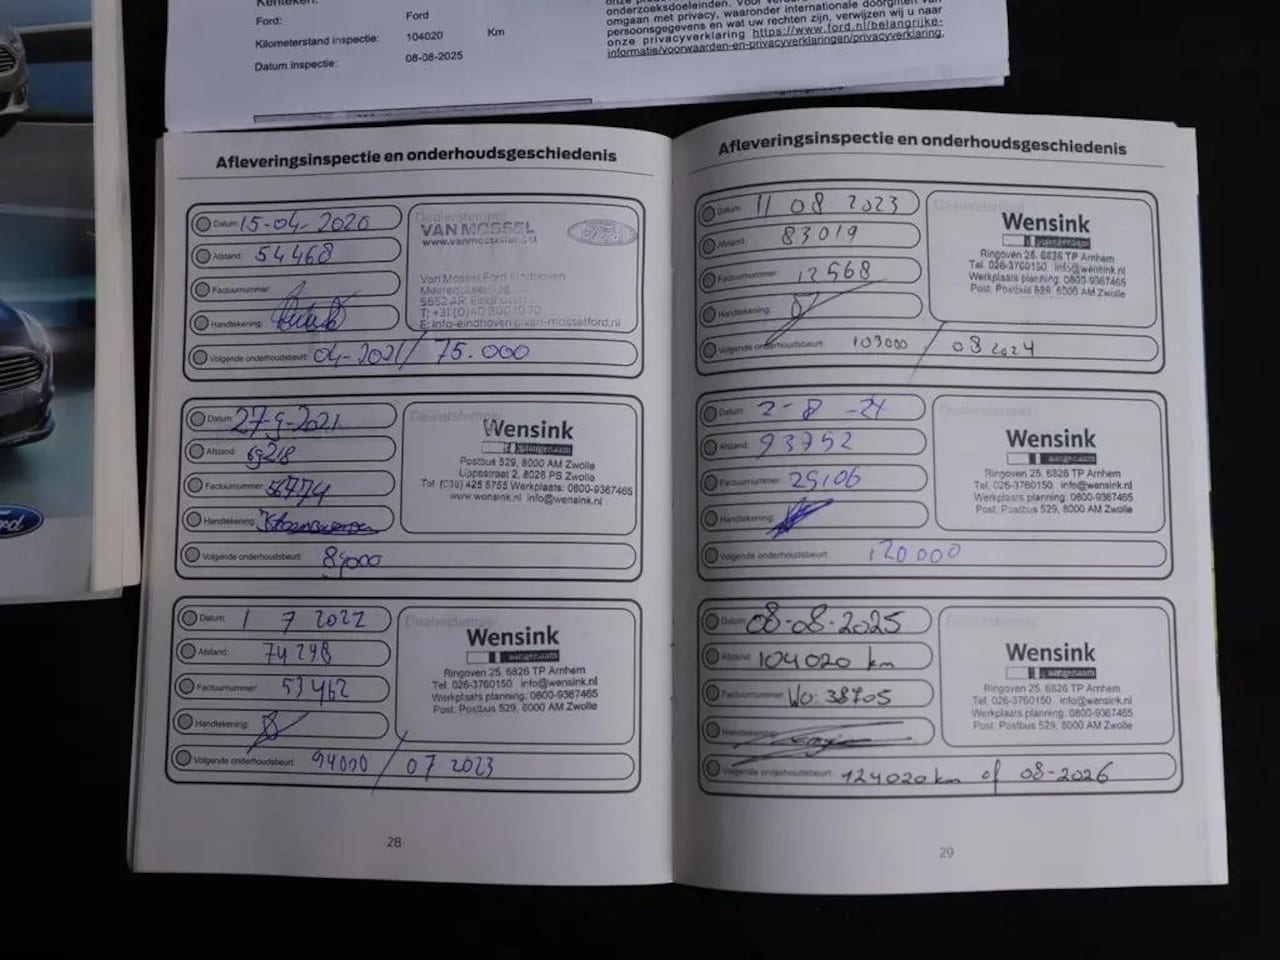 Kenteken:
Ford: Ford
Kilometerstand inspectie: 104020 Km
Datum inspectie: 08-08-2025
onderzoeksdoeleinden. Voor
omgaan met privacy, waaronder internationale doorgiften van
persoonsgegevens en wat uw rechten zijn, verwijzen wij u naar
onze privacyverklaring https://www.ford.nl/belangrijke-
informatie/voorwaarden-en-privacyverklaringen/privacyverklaring.
Afleveringsinspectie en onderhoudsgeschiedenis
Datum: 15-04-2020
Afstand: 54468
Factuurnummer:
Handtekening:
Volgende onderhoudsbeurt: 04-2021/ 75.000
Dealerstempel
VAN MOSSEL
www.vanmosselford.nl
Ford
Van Mossel Ford Eindhoven
5652 AR Eindhoven
E: info-eindhoven@van-mosselford.nl
Datum: 27-9-2021
Afstand: 69218
Factuurnummer: 56774
Handtekening:
Volgende onderhoudsbeurt: 89000
Dealerstempel
Wensink
aangenaam
Postbus 529, 8000 AM Zwolle
Lippestraat 2, 8028 PS Zwolle
Tel (038) 425 5755 Werkplaats: 0800-9367465
www.wensink.nl info@wensink.nl
Datum: 1 7 2022
Afstand: 74298
Factuurnummer: 53462
Handtekening:
Volgende onderhoudsbeurt: 94000 / 07 2023
Dealerstempel
Wensink
aangenaam
Ringoven 25, 6826 TP Arnhem
Tel. 026-3760150 info@wensink.nl
Werkplaats planning: 0800-9367465
Post: Postbus 529, 8000 AM Zwolle
28
Afleveringsinspectie en onderhoudsgeschiedenis
Datum: 11 08 2023
Afstand: 83019
Factuurnummer: 12568
Handtekening:
Volgende onderhoudsbeurt: 103000 / 08 2024
Dealerstempel
Wensink
aangenaam
Ringoven 25, 6826 TP Arnhem
Tel. 026-3760150 info@wensink.nl
Werkplaats planning: 0800-9367465
Post. Postbus 529, 8000 AM Zwolle
Datum: 2-8-24
Afstand: 93752
Factuurnummer: 25106
Handtekening:
Volgende onderhoudsbeurt: 120000
Dealerstempel
Wensink
aangenaam
Ringoven 25, 6826 TP Arnhem
Tel. 026-3760150 info@wensink.nl
Werkplaats planning: 0800-9367465
Post. Postbus 529, 8000 AM Zwolle
Datum: 08-08-2025
Afstand: 104020 km
Factuurnummer: Wo: 38705
Handtekening:
Volgende onderhoudsbeurt: 124020 km of 08-2026
Dealerstempel
Wensink
aangenaam
Ringoven 25, 6826 TP Arnhem
Tel. 026-3760150 info@wensink.nl
Werkplaats planning: 0800-9367465
Post. Postbus 529, 8000 AM Zwolle
29